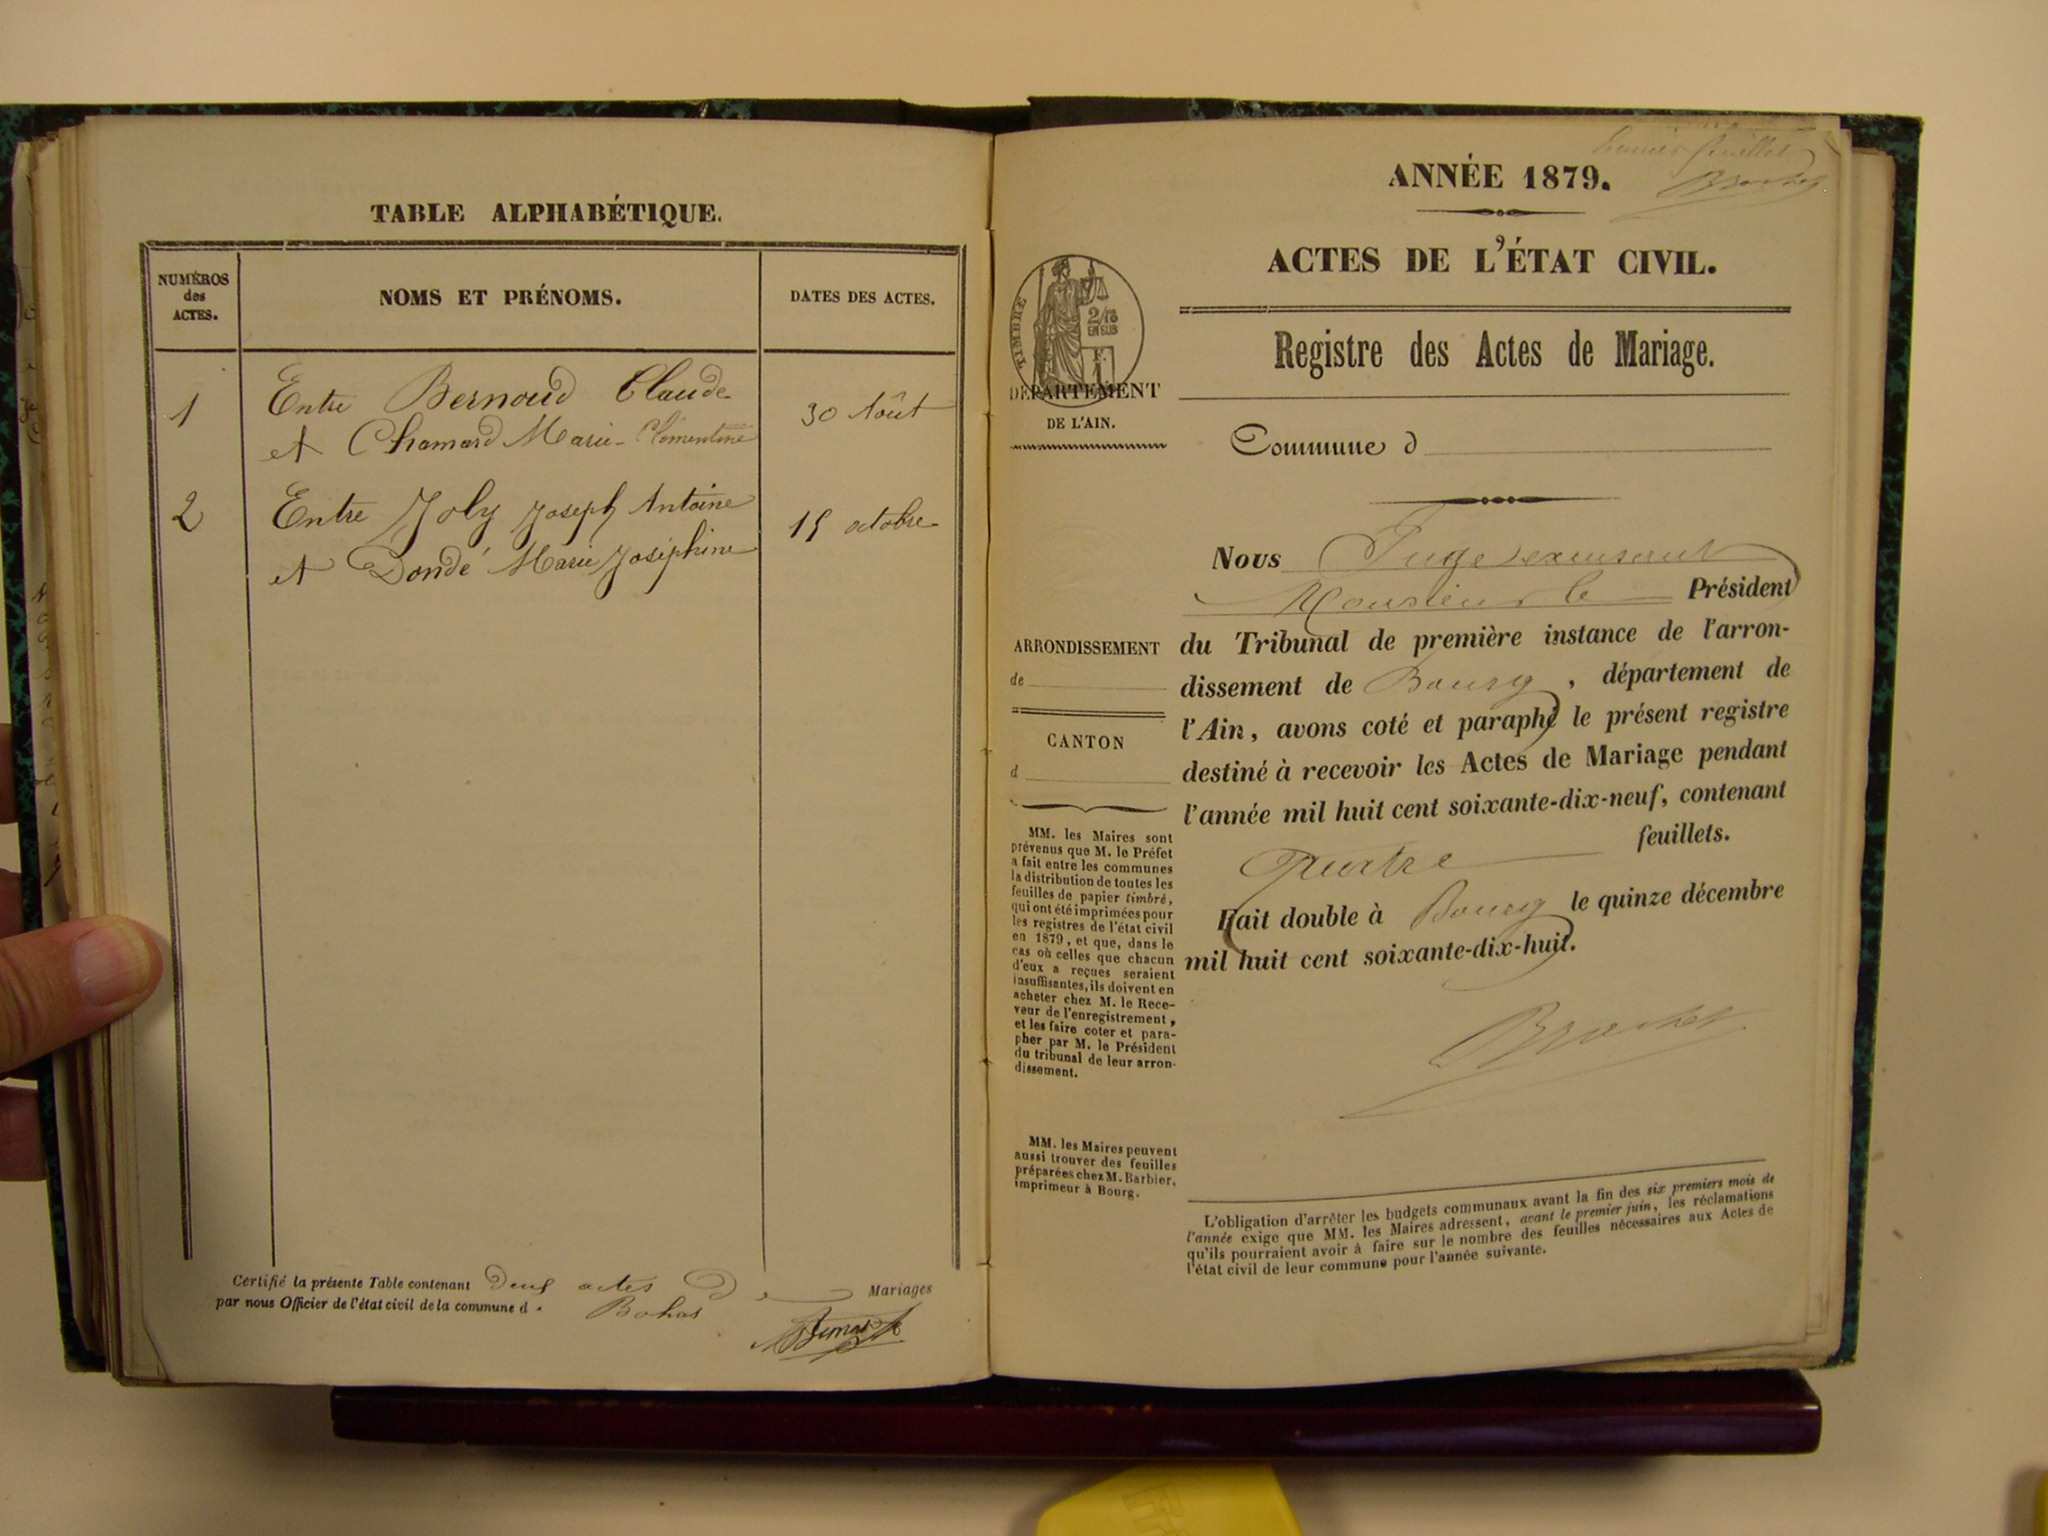 TABLE ALPHABÉTIQUE.
NUMÉROS
des
ACTES.
NOMS ET PRÉNOMS.
DATES DES ACTES.
1
Entre Bernoud Claude
et Chamard Marie-Clémentine
30 Août
2
Entre Joly Joseph Antoine
et Dondé Marie Joséphine
15 octobre
Certifié la présente Table contenant deux actes d Mariages
par nous Officier de l'état civil de la commune d Bohas
premier feuillet
Brochet
ANNÉE 1879.
ACTES DE L'ÉTAT CIVIL.
TIMBRE
2/10
EN SUS
DÉPARTEMENT
DE L'AIN.
Registre des Actes de Mariage.
Commune d
Nous Juge
Monsieur le Président
du Tribunal de première instance de l'arron-
dissement de Bourg, département de
l'Ain, avons coté et paraphé le présent registre
destiné à recevoir les Actes de Mariage pendant
l'année mil huit cent soixante-dix-neuf, contenant
Quatre feuillets.
Fait double à Bourg le quinze décembre
mil huit cent soixante-dix-huit.
Brochet
ARRONDISSEMENT
de
CANTON
d
MM. les Maires sont
prévenus que M. le Préfet
a fait entre les communes
la distribution de toutes les
feuilles de papier timbré,
qui ont été imprimées pour
les registres de l'état civil
en 1879, et que, dans le
cas où celles que chacun
d'eux a reçues seraient
insuffisantes, ils doivent en
acheter chez M. le Rece-
veur de l'enregistrement,
et les faire coter et para-
pher par M. le Président
du tribunal de leur arron-
dissement.
MM. les Maires peuvent
aussi trouver des feuilles
préparées chez M. Barbier,
imprimeur à Bourg.
L'obligation d'arrêter les budgets communaux avant la fin des six premiers mois de
l'année exige que MM. les Maires adressent, avant le premier juin, les réclamations
qu'ils pourraient avoir à faire sur le nombre des feuilles nécessaires aux Actes de
l'état civil de leur commune pour l'année suivante.